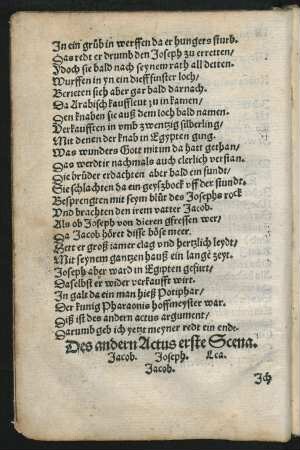 In ein grüb in werffen da er hungers sturb.
Das redt er drumb den Joseph zu erretten/
Jdoch sie bald nach seynem rath all detten.
Wurffen in yn ein dieff finster loch/
Berieten sich aber gar bald darnach.
Da Arabisch kauffleut zu in kamen/
Den knaben sie auß dem loch bald namen.
Verkaufften in vmb zwentzig silberling/
Mit denen der knab in Egypten ging.
Was wunders Gott mit im da hatt gethan/
Das werdt ir nachmals auch clerlich verstan.
Die brüder erdachten aber bald ein fundt/
Sie schlachten ha ein geyszbock vff der stundt.
Besprengten mit seym blůt des Josephs rock
Vnd brachten den irem vatter Jacob.
Als ob Joseph von dieren gfressen wer/
Da Jacob höret disse böse meer.
Hett er groß jamer clag vnd hertzlich leydt/
Mit seynem gantzen hauß ein lange zeyt.
Joseph aber ward in Egipten gefurt/
Daselbst er wider verkaufft wirt.
In galt da ein man hieß Potiphar/
Der kunig Pharaonis hoffmeyster war.
Diß ist des andern actus argument/
Darumb geb ich yetz meyner redt ein ende.
Des andern Actus erste Scena.
Jacob. Joseph. Lea.
Jacob.
Jch